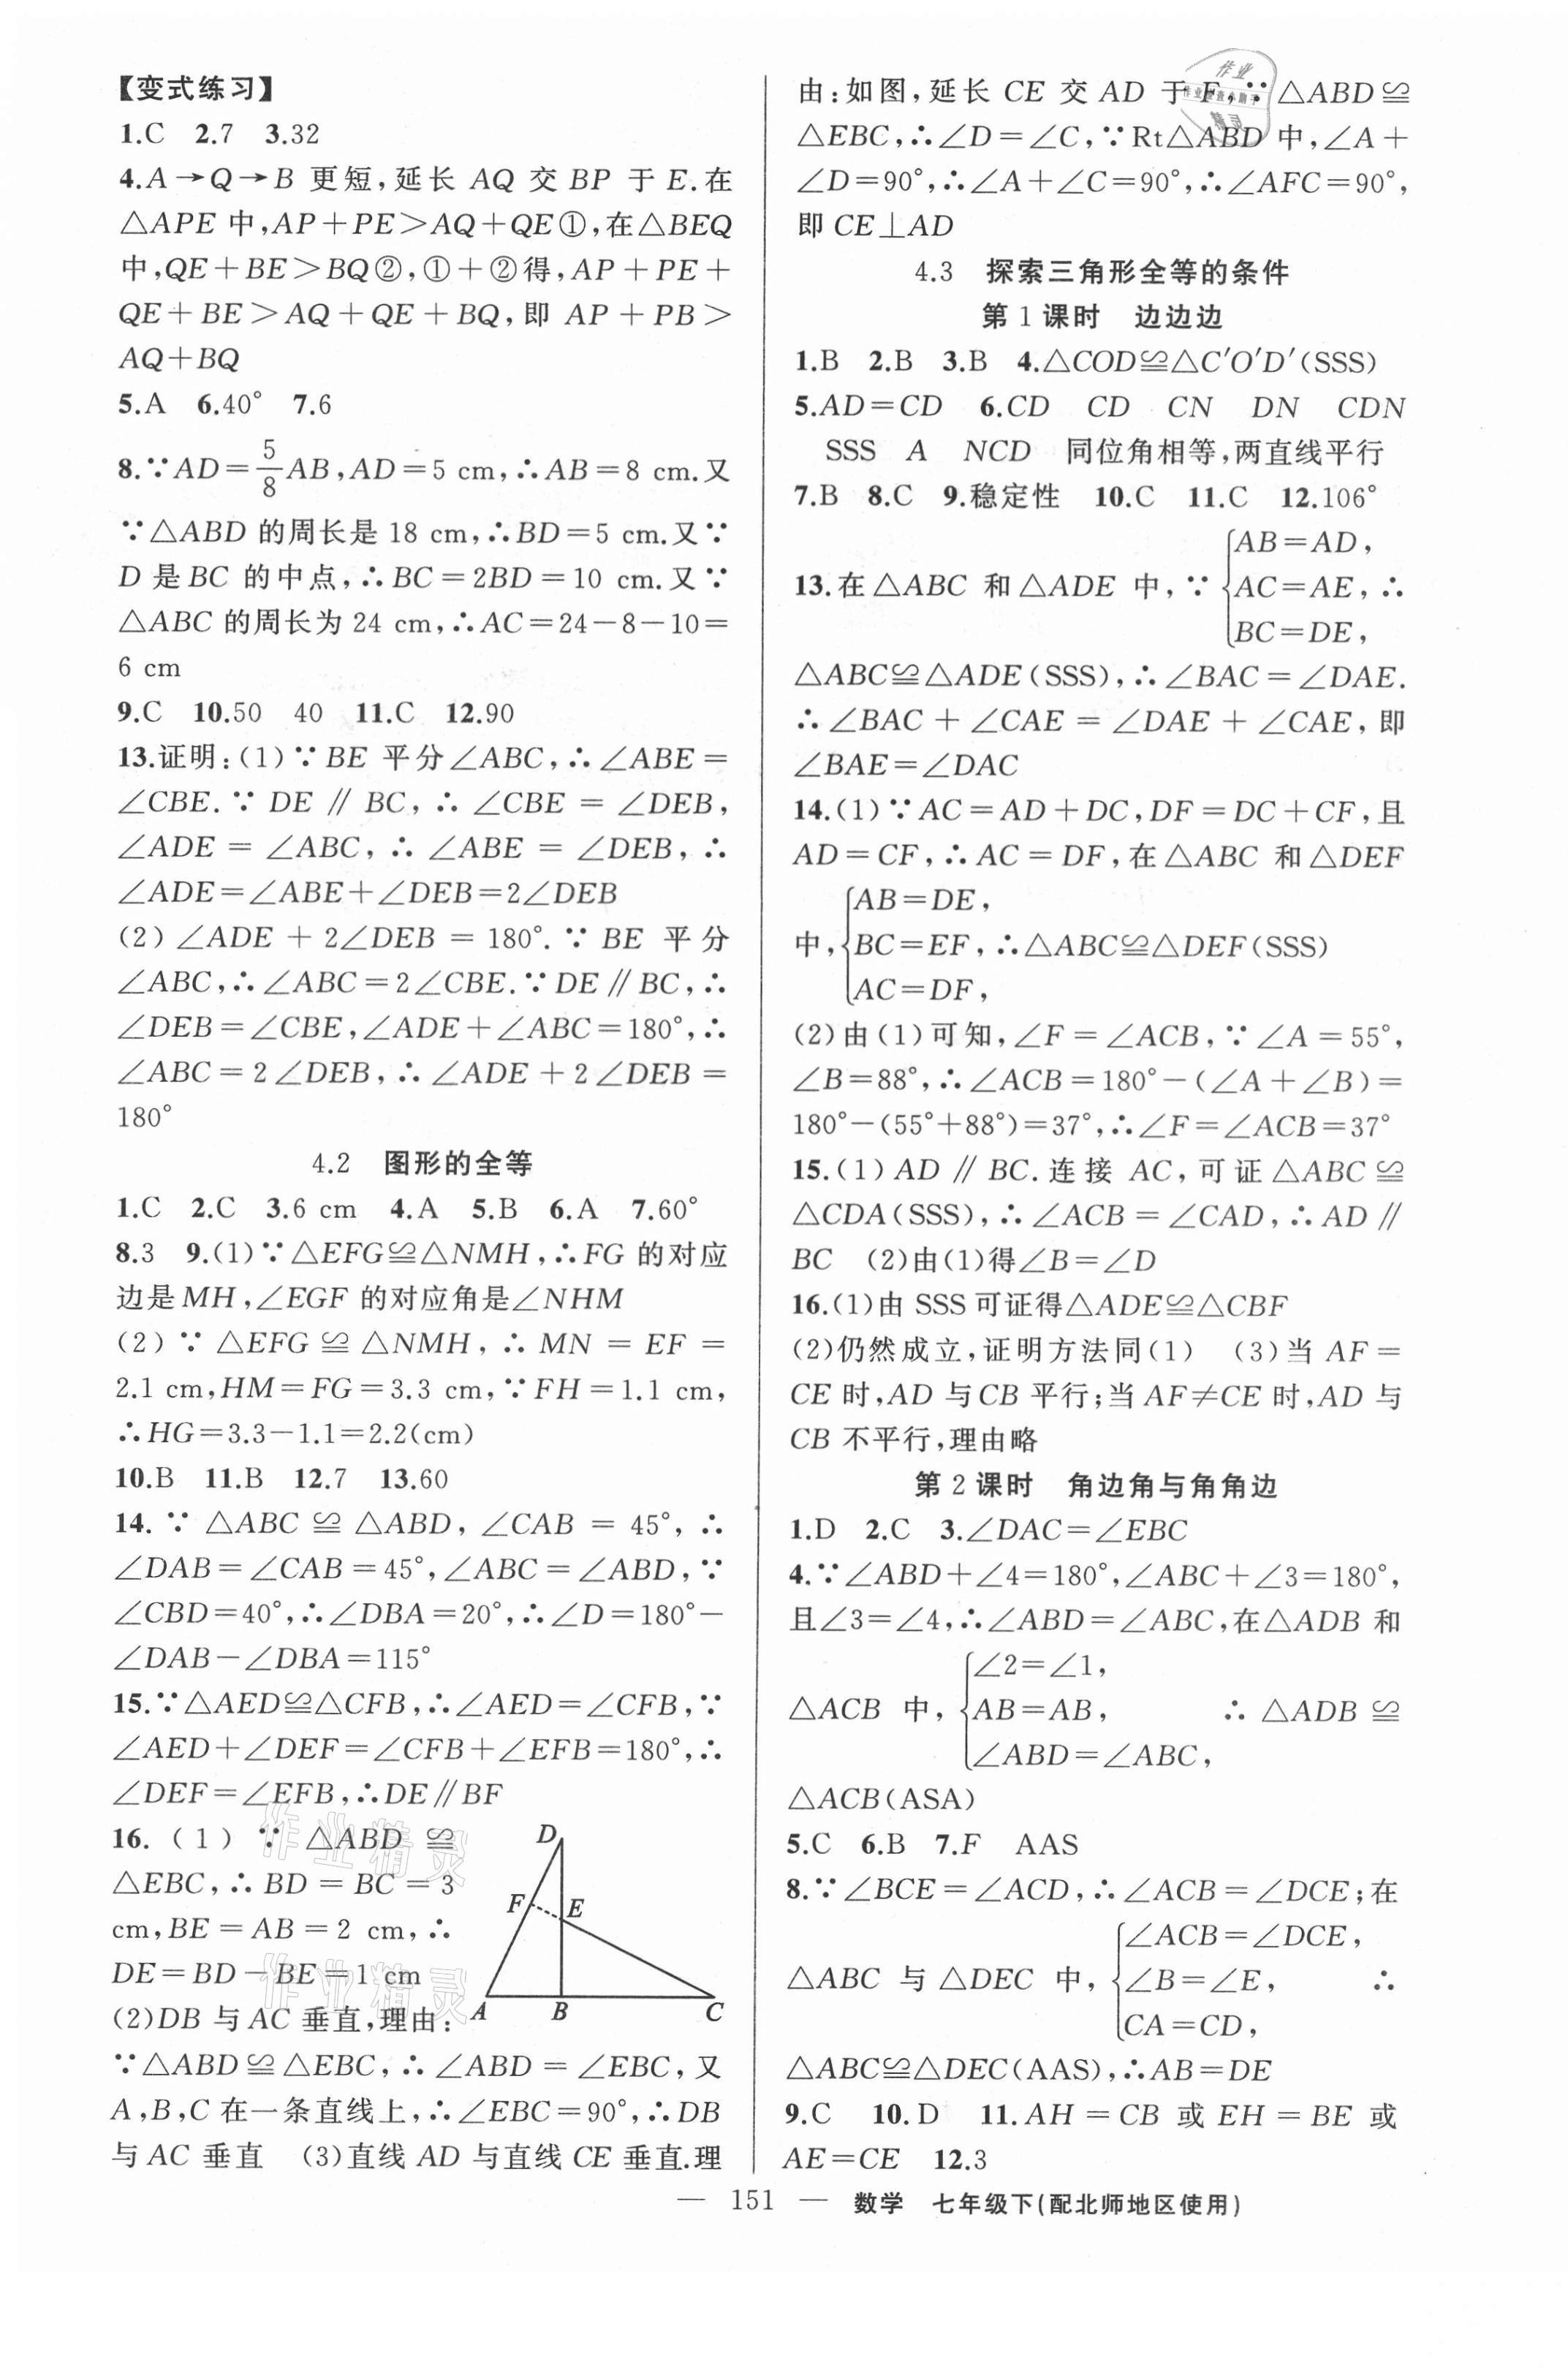 【变式练习】
1.C 2.7 3.32
4.A→Q→B 更短,延长 AQ 交 BP 于 E.在
△APE 中,AP+PE>AQ+QE①,在△BEQ
中,QE+BE>BQ②,①+②得,AP+PE+
QE+BE>AQ+QE+BQ,即 AP+PB>
AQ+BQ
5.A 6.40° 7.6
8.∵AD=5/8AB,AD=5 cm,∴AB=8 cm.又
∵△ABD 的周长是 18 cm,∴BD=5 cm.又∵
D 是 BC 的中点,∴BC=2BD=10 cm.又∵
△ABC 的周长为 24 cm,∴AC=24-8-10=
6 cm
9.C 10.50 40 11.C 12.90
13.证明:(1)∵BE 平分∠ABC,∴∠ABE=
∠CBE.∵DE∥BC,∴∠CBE=∠DEB,
∠ADE=∠ABC,∴∠ABE=∠DEB,∴
∠ADE=∠ABE+∠DEB=2∠DEB
(2)∠ADE+2∠DEB=180°.∵BE 平分
∠ABC,∴∠ABC=2∠CBE.∵DE∥BC,∴
∠DEB=∠CBE,∠ADE+∠ABC=180°,∴
∠ABC=2∠DEB,∴∠ADE+2∠DEB=
180°
4.2 图形的全等
1.C 2.C 3.6 cm 4.A 5.B 6.A 7.60°
8.3 9.(1)∵△EFG≌△NMH,∴FG 的对应
边是 MH,∠EGF 的对应角是∠NHM
(2)∵△EFG≌△NMH,∴MN=EF=
2.1 cm,HM=FG=3.3 cm,∵FH=1.1 cm,
∴HG=3.3-1.1=2.2(cm)
10.B 11.B 12.7 13.60
14.∵△ABC≌△ABD,∠CAB=45°,∴
∠DAB=∠CAB=45°,∠ABC=∠ABD,∵
∠CBD=40°,∴∠DBA=20°,∴∠D=180°-
∠DAB-∠DBA=115°
15.∵△AED≌△CFB,∴∠AED=∠CFB,∵
∠AED+∠DEF=∠CFB+∠EFB=180°,∴
∠DEF=∠EFB,∴DE∥BF
16.(1)∵△ABD≌
△EBC,∴BD=BC=3
cm,BE=AB=2 cm,∴
DE=BD-BE=1 cm
(2)DB 与 AC 垂直,理由:
D
F
E
A
B
C
作业精灵
作业精灵
∵△ABD≌△EBC,∴∠ABD=∠EBC,又
A,B,C 在一条直线上,∴∠EBC=90°,∴DB
与 AC 垂直 (3)直线 AD 与直线 CE 垂直.理
由:如图,延长 CE 交 AD 于 F,∵△ABD≌
△EBC,∴∠D=∠C,∵Rt△ABD 中,∠A+
∠D=90°,∴∠A+∠C=90°,∴∠AFC=90°,
即 CE⊥AD
作业
精灵
4.3 探索三角形全等的条件
第 1 课时 边边边
1.B 2.B 3.B 4.△COD≌△C′O′D′(SSS)
5.AD=CD 6.CD CD CN DN CDN
SSS A NCD 同位角相等,两直线平行
7.B 8.C 9.稳定性 10.C 11.C 12.106°
AB=AD,
13.在△ABC 和△ADE 中,∵{AC=AE,∴
BC=DE,
△ABC≌△ADE(SSS),∴∠BAC=∠DAE.
∴∠BAC+∠CAE=∠DAE+∠CAE,即
∠BAE=∠DAC
14.(1)∵AC=AD+DC,DF=DC+CF,且
AD=CF,∴AC=DF,在△ABC 和△DEF
AB=DE,
中,{BC=EF,∴△ABC≌△DEF(SSS)
AC=DF,
(2)由(1)可知,∠F=∠ACB,∵∠A=55°,
∠B=88°,∴∠ACB=180°-(∠A+∠B)=
180°-(55°+88°)=37°,∴∠F=∠ACB=37°
15.(1)AD∥BC.连接 AC,可证△ABC≌
△CDA(SSS),∴∠ACB=∠CAD,∴AD∥
BC (2)由(1)得∠B=∠D
16.(1)由 SSS 可证得△ADE≌△CBF
(2)仍然成立,证明方法同(1) (3)当 AF=
CE 时,AD 与 CB 平行;当 AF≠CE 时,AD 与
CB 不平行,理由略
第 2 课时 角边角与角角边
1.D 2.C 3.∠DAC=∠EBC
4.∵∠ABD+∠4=180°,∠ABC+∠3=180°,
且∠3=∠4,∴∠ABD=∠ABC,在△ADB 和
∠2=∠1,
△ACB 中,{AB=AB, ∴△ADB≌
∠ABD=∠ABC,
△ACB(ASA)
5.C 6.B 7.F AAS
8.∵∠BCE=∠ACD,∴∠ACB=∠DCE;在
∠ACB=∠DCE,
△ABC 与△DEC 中,{∠B=∠E, ∴
CA=CD,
△ABC≌△DEC(AAS),∴AB=DE
9.C 10.D 11.AH=CB 或 EH=BE 或
AE=CE 12.3
— 151 — 数学 七年级下(配北师地区使用)